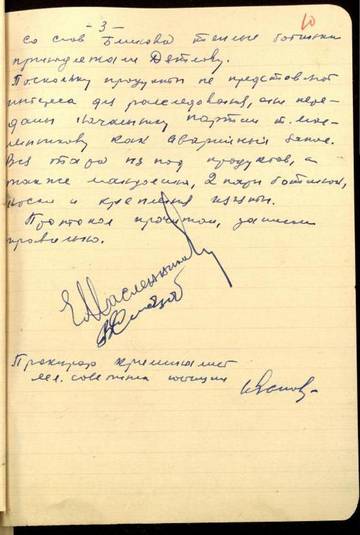 - 3 -
10
Со слов Бликова теплые ботинки
принадлежали Дятлову.
Поскольку продукты не представляют
интереса для расследования, они пере-
даны начальнику партии т. Мас-
ленникову как аварийный запас.
Вся тара из под продуктов, а
также мандолина, 2 пары ботинок,
носки и крепления изъяты.
Протокол прочитан, записан
правильно.
Е. Масленников
Прокурор криминалист
мл. советник юстиции
Иванов